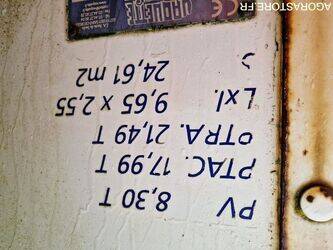 PV 8,30 T
PTAC. 17,99 T
PTRA. 21,49 T
Lxl. 9,65 x 2,55
S 24,61 m2
AGORASTORE.FR